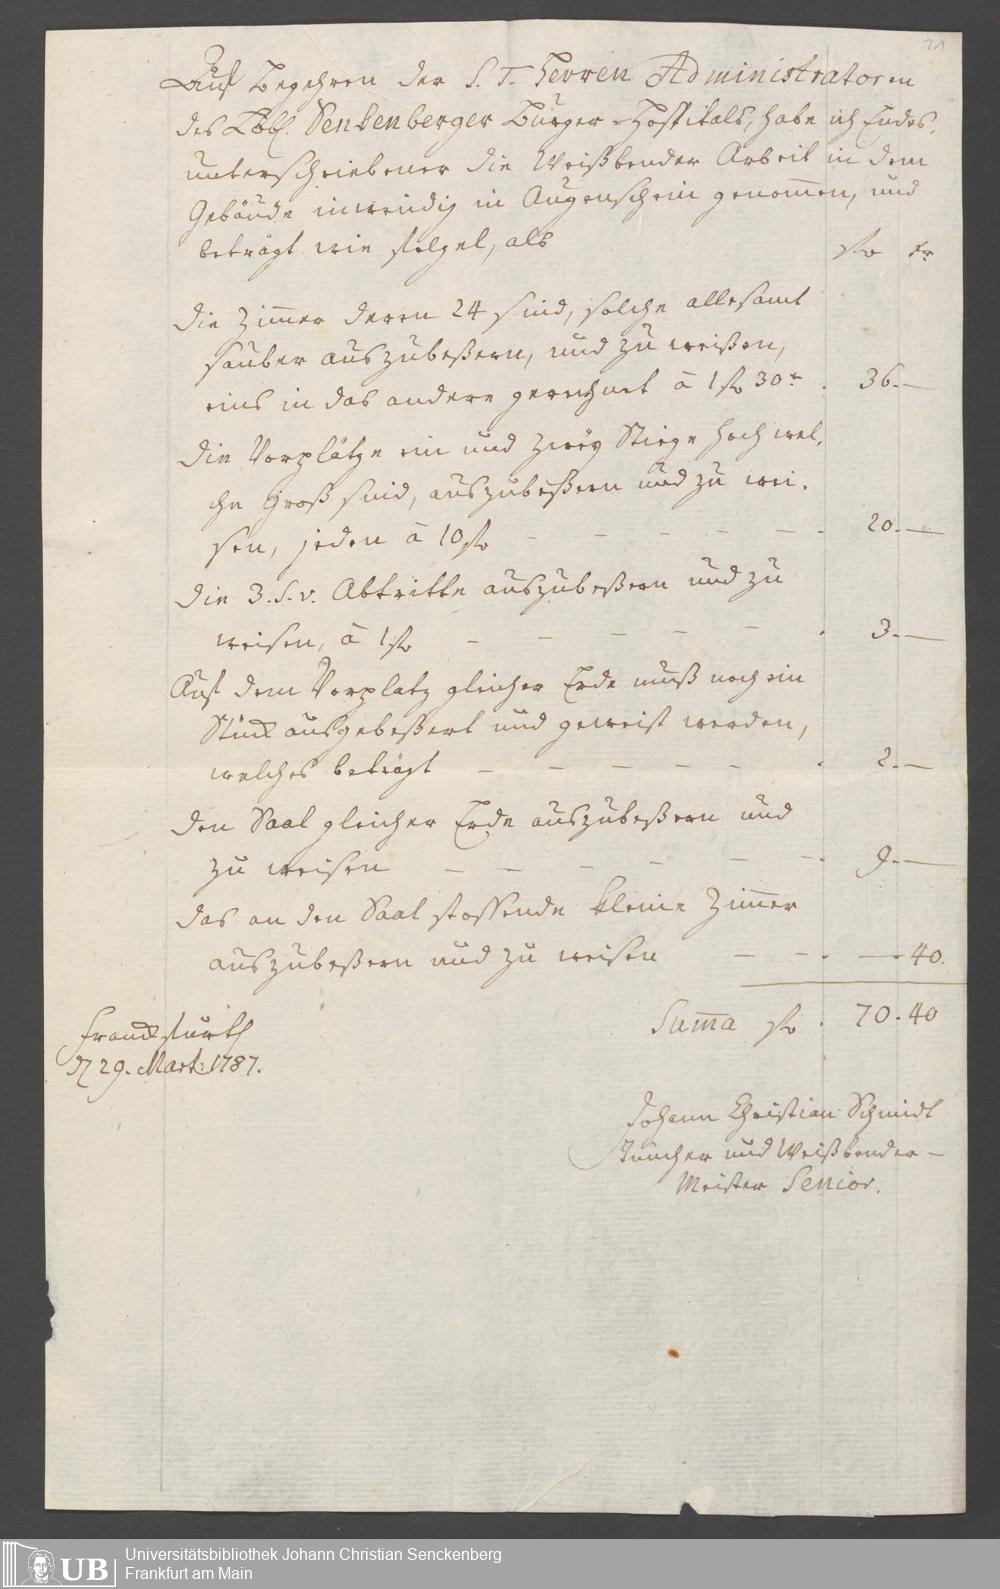 Auf Begehren der S. T. Herren Administratoren
des Löbl. Senkenberger Bürger-Hospitals, habe ich Endes,
unterschriebener die Weißbender Arbeit in dem
Gebäude inwendig in Augenschein genommen, und
beträgt wie folget, als
fl xr
die Zimmer deren 24 sind, solche allesamt
sauber auszubeßern, und zu weißen,
eins in das andere gerechnet â 1 fl 30 xr . 36. —
die Vorplätze ein und zwey Stiege hoch wel,
che Groß sind, auszubeßern und zu wei,
sen, jeden â 10 fl - - - - - . 20. —
die 3. S. v. Abtritte auszubeßern und zu
weisen, â 1 fl - - - - - . 3. —
Auf dem Vorplatz gleicher Erde muß noch ein
Stück ausgebeßert und geweist werden,
welches beträgt - - - - - . 2. —
den Saal gleicher Erde auszubeßern und
zu weisen - - - - - - . 9. —
das an den Saal stossende kleine Zimmer
auszubeßern und zu weisen - - . — 40.
Summa fl . 70. 40
Franckfurth
d 29. Mart: 1787.
Johann Christian Schmidt
Tüncher und Weißbender -
Meister Senior.
UB
Universitätsbibliothek Johann Christian Senckenberg
Frankfurt am Main